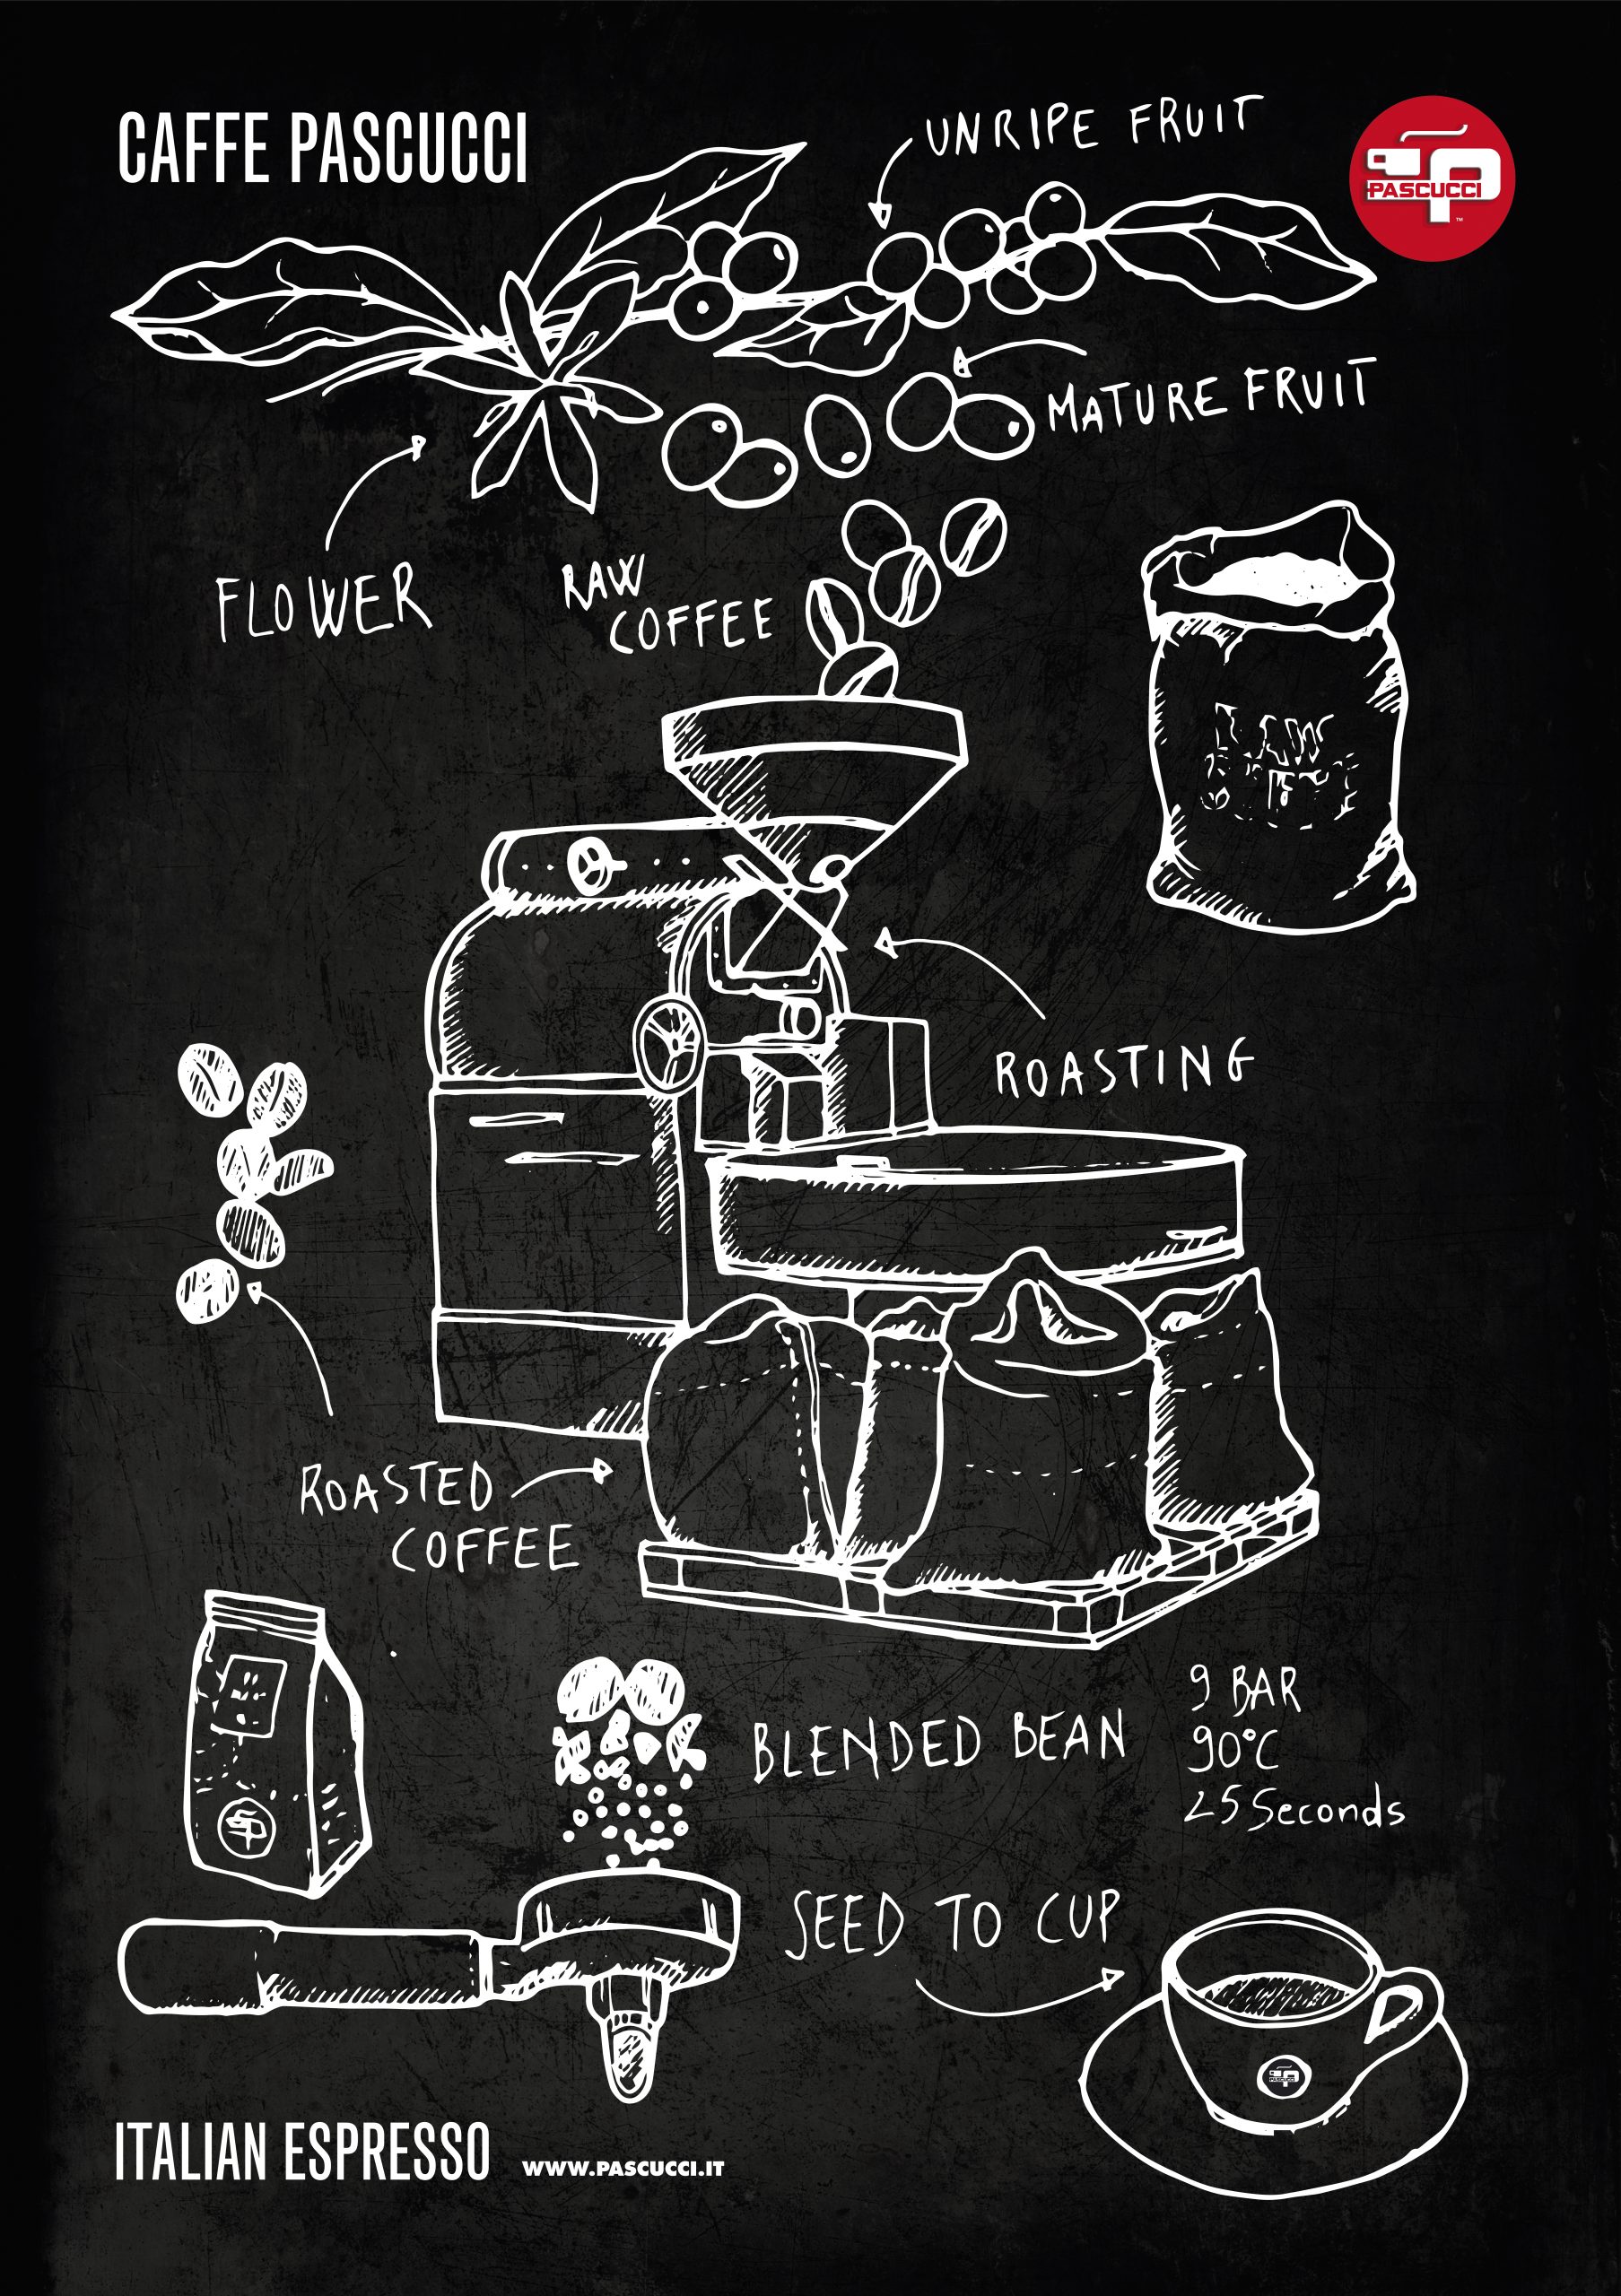 CAFFE PASCUCCI
UNRIPE FRUIT
PASCUCCI
™
MATURE FRUIT
FLOWER
RAW
COFFEE
RAW
ROASTING
ROASTED
COFFEE
BLENDED BEAN
9 BAR
90°C
25 Seconds
SEED TO CUP
PASCUCCI
ITALIAN ESPRESSO
WWW.PASCUCCI.IT